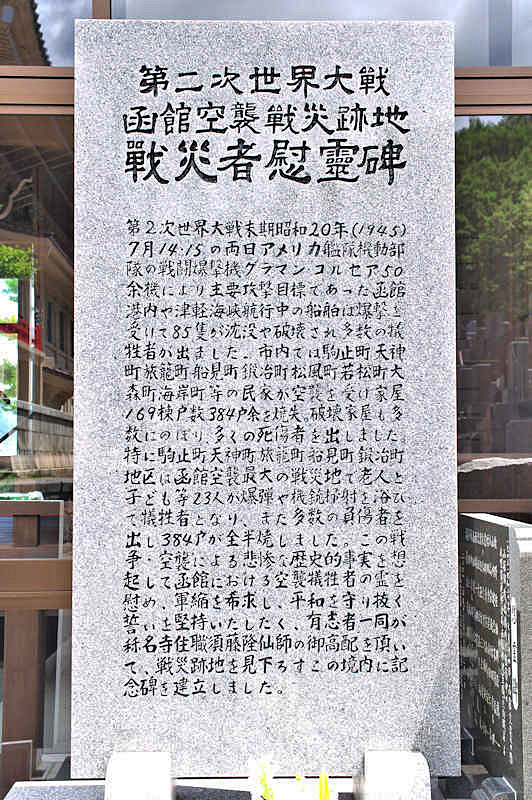 第二次世界大戦
函館空襲戦災跡地
戰災者慰靈碑
第2次世界大戦末期昭和20年(1945)
7月14・15の両日アメリカ艦隊機動部
隊の戦闘爆撃機グラマン・コルセア50
余機により主要攻撃目標であった函館
港内や津軽海峡航行中の船舶は爆撃を
受けて85隻が沈没や破壊され多数の犠
牲者が出ました。市内では駒止町天神
町旅籠町船見町鍛冶町松風町若松町大
森町海岸町等の民家が空襲を受け家屋
169棟戸数384戸余を焼失、破壊家屋も多
数にのぼり、多くの死傷者を出しました。
特に駒止町天神町旅籠町船見町鍛冶町
地区は函館空襲最大の戦災地で老人と
子ども等23人が爆弾や機銃掃射を浴び
て犠牲者となり、また多数の負傷者を
出し384戸が全半焼しました。この戦
争・空襲による悲惨な歴史的事実を想
起して函館における空襲犠牲者の霊を
慰め、軍縮を希求し、平和を守り抜く
誓いを堅持いたしたく、有志者一同が
称名寺住職須藤隆仙師の御高配を頂い
て、戦災跡地を見下ろすこの境内に記
念碑を建立しました。